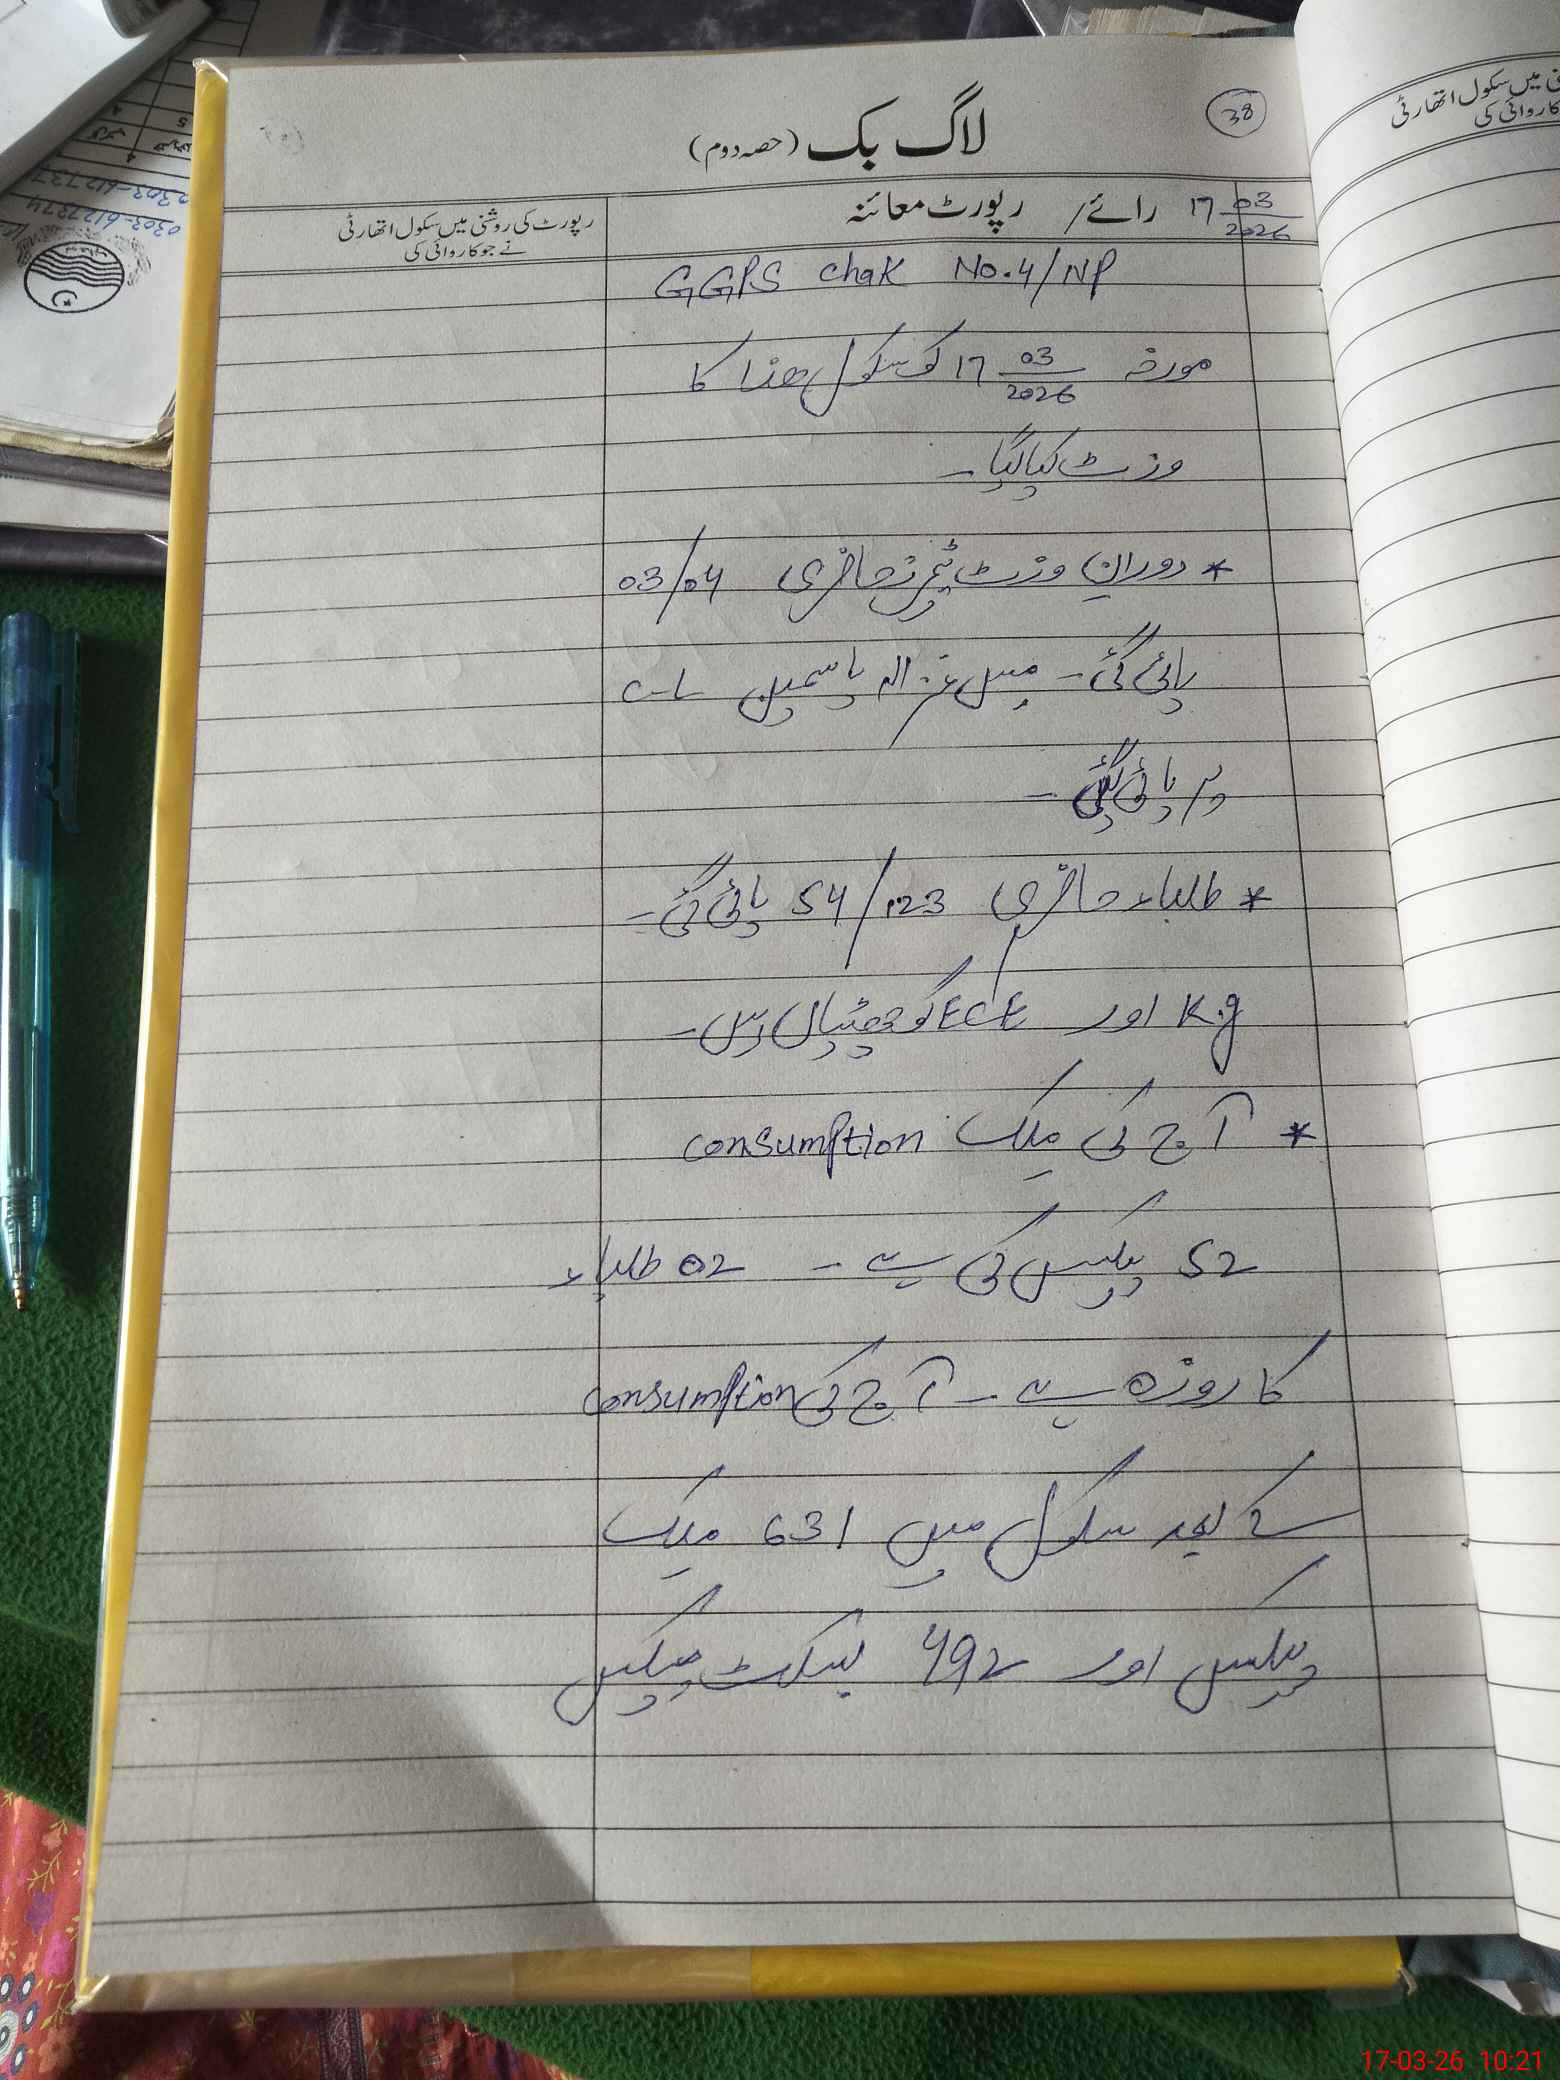 38
لاگ بک (حصہ دوم)
17 03/2026 رائے / رپورٹ معائنہ
رپورٹ کی روشنی میں سکول اتھارٹی
نے جو کاروائی کی
GGPS chak No.4/NP
مورخہ 17 03/2026 کو سکول ھذا کا
وزٹ کیا گیا۔
* دوران وزٹ ٹیچرز حاضری 03/04
پائی گئی۔ مس غزالہ یاسمین C-L
پر پائی گئی۔
* طلباء حاضری 54/123 پائی گئی۔
K.g اور ECE کو چھٹیاں ہیں۔
* آج کی ملک consumption
52 پیکس کی ہے۔ 02 طلباء
کا روزہ ہے۔ آج کی consumption
کے بعد سکول میں 631 ملک
پیکس اور 492 بسکٹ پیکس
ی میں سکول اتھارٹی
کاروائی کی
0303-6127374
17-03-26 10:21